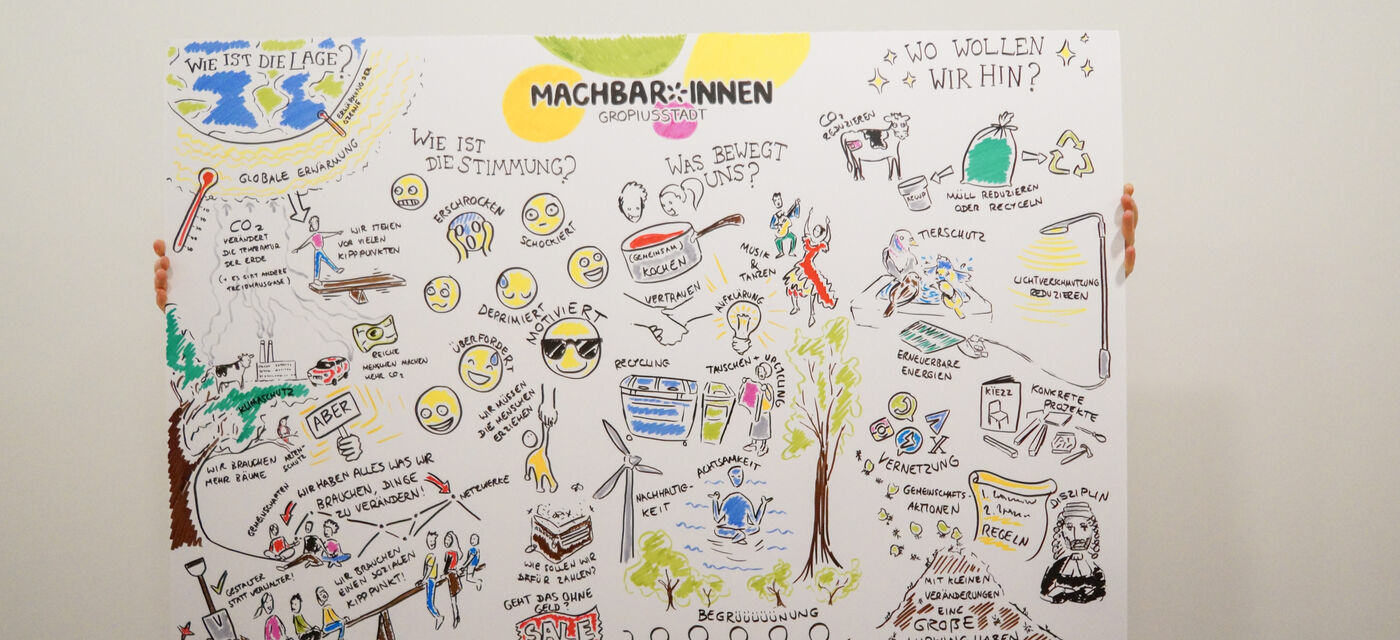 WIE IST DIE LAGE?
ERWÄRMUNG DER
OZEANE
GLOBALE ERWÄRMUNG
CO2
VERÄNDERT
DIE TEMPERATUR
DER ERDE
(+ ES GIBT ANDERE
TREIBHAUSGASE)
WIR STEHEN
VOR VIELEN
KIPPPUNKTEN
REICHE
MENSCHEN MACHEN
MEHR CO2
KLIMASCHUTZ
ABER
WIR BRAUCHEN
MEHR BÄUME
ARTEN-
SCHUTZ
WIR HABEN ALLES WAS WIR
BRAUCHEN, DINGE
ZU VERÄNDERN!
GEMEINSCHAFTEN
NETZWERKE
GESTALTER
STATT VERWALTER!
WIR BRAUCHEN
EINEN SOZIALEN
KIPPPUNKT!
MACHBAR:INNEN
GROPIUSSTADT
WIE IST
DIE STIMMUNG?
ERSCHROCKEN
SCHOCKIERT
DEPRIMIERT
MOTIVIERT
ÜBERFORDERT
WIR MÜSSEN
DIE MENSCHEN
ERZIEHEN
WIE SOLLEN WIR
DAFÜR ZAHLEN?
GEHT DAS OHNE
GELD?
SALE
WAS BEWEGT
UNS?
(GEMEINSAM)
KOCHEN
MUSIK
&
TANZEN
VERTRAUEN
AUFKLÄRUNG
RECYCLING
TAUSCHEN + UPCYCLING
ACHTSAMKEIT
NACHHALTIG-
KEIT
BEGRÜÜÜÜÜNUNG
WO WOLLEN
WIR HIN?
CO2
REDUZIEREN
MÜLL REDUZIEREN
ODER RECYCELN
TIERSCHUTZ
LICHTVERSCHMUTZUNG
REDUZIEREN
ERNEUERBARE
ENERGIEN
KIEZZ
KONKRETE
PROJEKTE
X
VERNETZUNG
GEMEINSCHAFTS-
AKTIONEN
1.
2.
REGELN
DISZIPLIN
MIT KLEINEN
VERÄNDERUNGEN
EINE
GROẞE
WIRKUNG HABEN